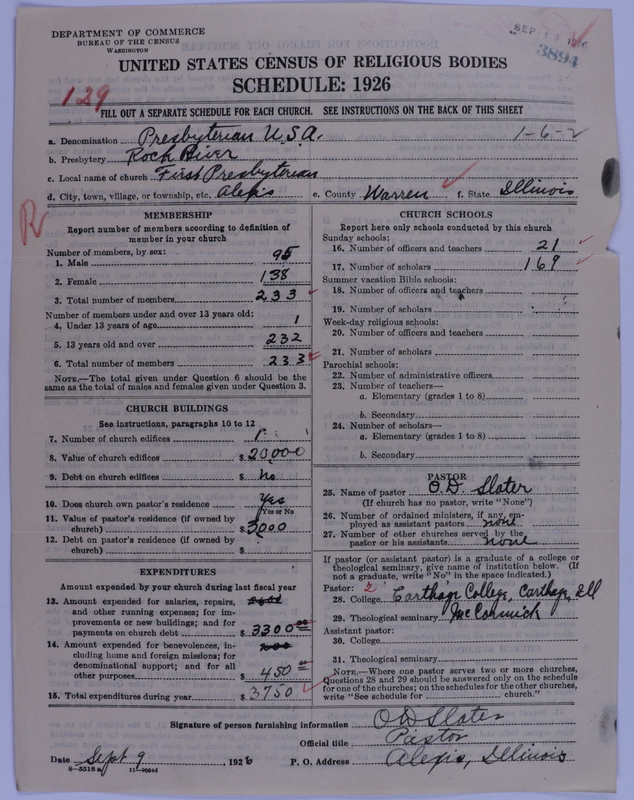 DEPARTMENT OF COMMERCE
BUREAU OF THE CENSUS
WASHINGTON
SEP 13
3894
UNITED STATES CENSUS OF RELIGIOUS BODIES
SCHEDULE: 1926
129
FILL OUT A SEPARATE SCHEDULE FOR EACH CHURCH. SEE INSTRUCTIONS ON THE BACK OF THIS SHEET
a. Denomination Presbyterian U.S.A. 1-6-2
b. Presbytery Rock River
c. Local name of church First Presbyterian
d. City, town, village, or township, etc. Alexis e. County Warren f. State Illinois
R
MEMBERSHIP
Report number of members according to definition of
member in your church
Number of members, by sex:
1. Male 95
2. Female 138
3. Total number of members 233
Number of members under and over 13 years old:
4. Under 13 years of age 1
5. 13 years old and over 232
6. Total number of members 233
NOTE.—The total given under Question 6 should be the
same as the total of males and females given under Question 3.
CHURCH BUILDINGS
See instructions, paragraphs 10 to 12
7. Number of church edifices 1
8. Value of church edifices $ 20,000
9. Debt on church edifices $ No
10. Does church own pastor's residence Yes
Yes or No
11. Value of pastor's residence (if owned by
church) $ 3000
12. Debt on pastor's residence (if owned by
church) $
EXPENDITURES
Amount expended by your church during last fiscal year
13. Amount expended for salaries, repairs,
and other running expenses; for im-
provements or new buildings; and for
payments on church debt $ 3300.00
14. Amount expended for benevolences, in-
cluding home and foreign missions; for
denominational support; and for all
other purposes $ 450.00
15. Total expenditures during year $ 3750
CHURCH SCHOOLS
Report here only schools conducted by this church
Sunday schools:
16. Number of officers and teachers 21
17. Number of scholars 169
Summer vacation Bible schools:
18. Number of officers and teachers
19. Number of scholars
Week-day religious schools:
20. Number of officers and teachers
21. Number of scholars
Parochial schools:
22. Number of administrative officers
23. Number of teachers—
a. Elementary (grades 1 to 8)
b. Secondary
24. Number of scholars—
a. Elementary (grades 1 to 8)
b. Secondary
PASTOR
25. Name of pastor O.D. Slater
(If church has no pastor, write "None")
26. Number of ordained ministers, if any, em-
ployed as assistant pastors none
27. Number of other churches served by the
pastor or his assistants none
If pastor (or assistant pastor) is a graduate of a college or
theological seminary, give name of institution below. (If
not a graduate, write "No" in the space indicated.)
Pastor: 2
28. College Carthage College, Carthage, Ill
29. Theological seminary McCormick
Assistant pastor:
30. College
31. Theological seminary
NOTE.—Where one pastor serves two or more churches,
Questions 28 and 29 should be answered only on the schedule
for one of the churches; on the schedules for the other churches,
write "See schedule for church."
Signature of person furnishing information O D Slater
Official title Pastor
Date Sept 9, 1926 P. O. Address Alexis, Illinois
8—5518a 11—9084d